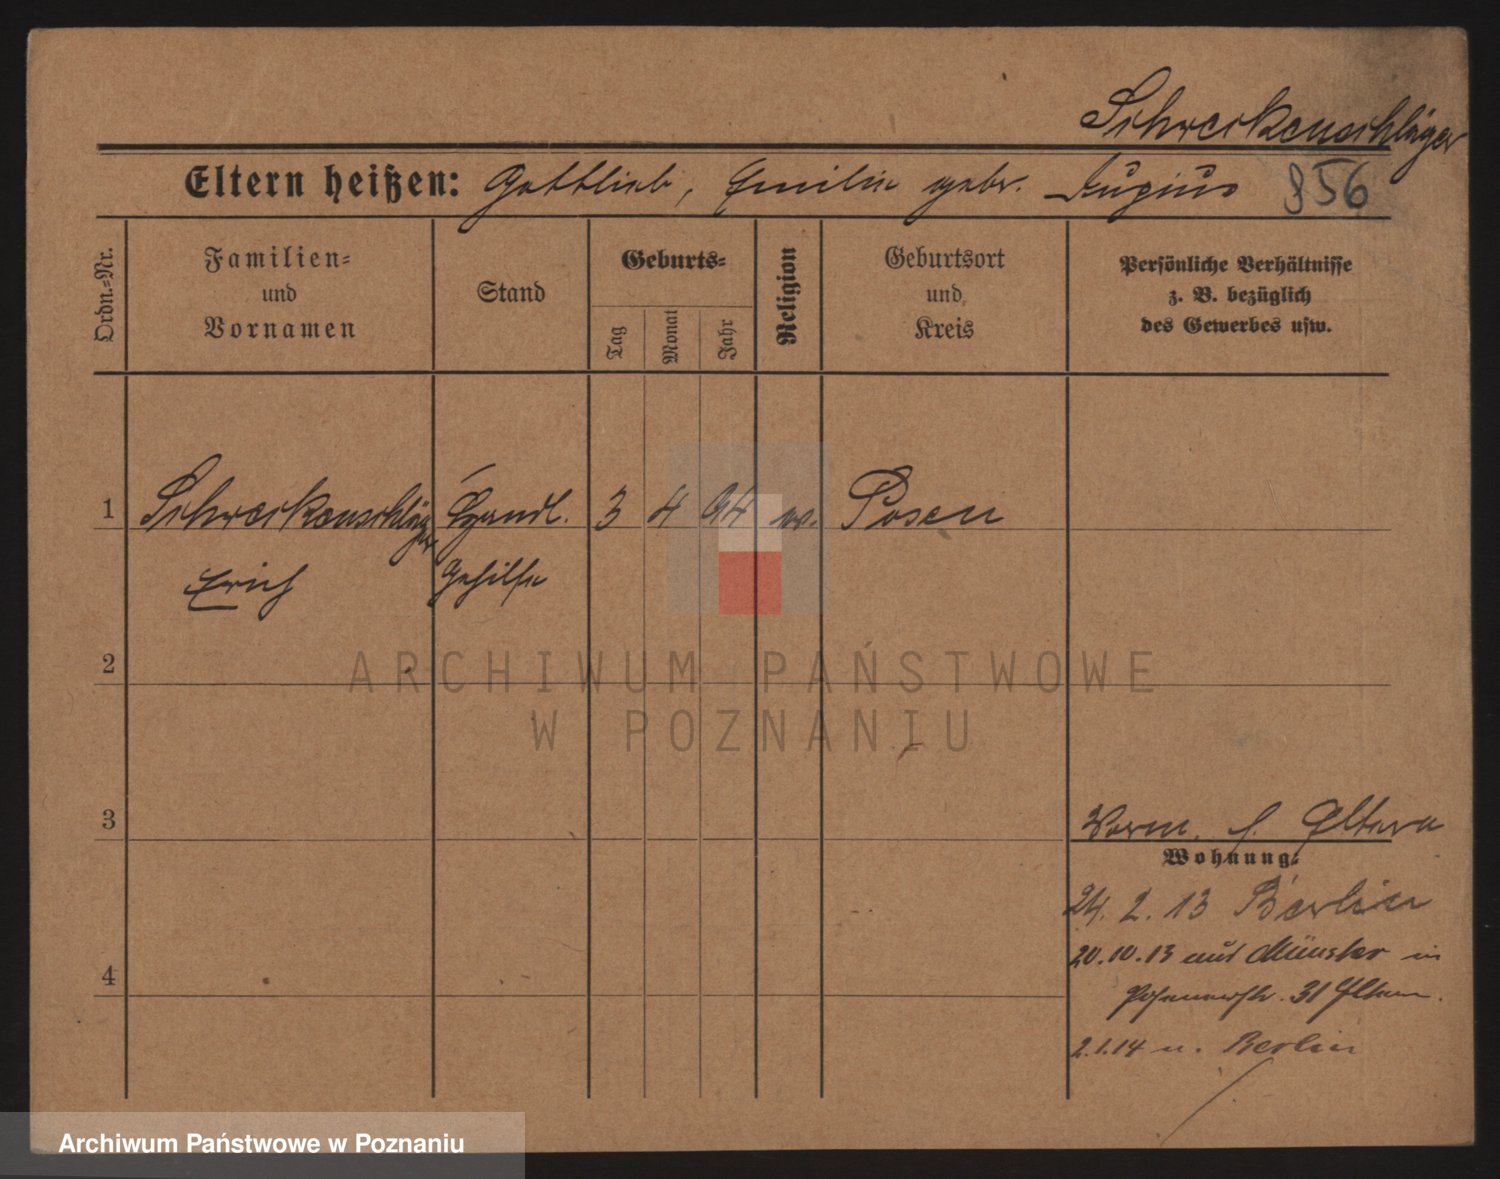 Schreckenschläger
Eltern heißen: Gottlieb, Emilie gebr.
856
Ordn.=Nr.
Familien=
und
Vornamen
Stand
Geburts=
Tag
Monat
Jahr
Religion
Geburtsort
und
Kreis
Persönliche Verhältnisse
z. B. bezüglich
des Gewerbes usw.
1 Schreckenschläger Handl. 3 4 94 ev. Posen
Erich Gehilfe
2
3
Vorm. s. Eltern
Wohnung.
24. 2. 13 Berlin
20.10.13 aus Münster in
31 Eltern.
4
2.1.14 n. Berlin
ARCHIWUM PAŃSTWOWE
W POZNANIU
Archiwum Państwowe w Poznaniu